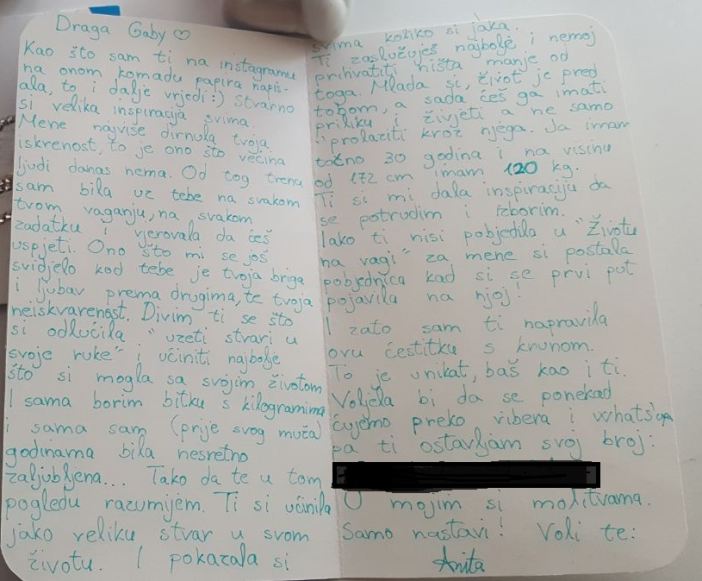 Draga Gaby ♡
Kao što sam ti na instagramu
na onom komadu papira napis-
ala, to i dalje vrjedi :) Stvarno
si velika inspiracija svima.
Mene najviše dirnula tvoja
iskrenost, to je ono što većina
ljudi danas nema. Od tog trena
sam bila uz tebe na svakom
tvom vaganju, na svakom
zadatku i vjerovala da ćeš
uspjeti. Ono što mi se još
svidjelo kod tebe je tvoja briga
i ljubav prema drugima, te tvoja
neiskvarenost. Divim ti se što
si odlučila "uzeti stvari u
svoje ruke" i učiniti najbolje
što si mogla sa svojim životom
I sama borim bitku s kilogramima
i sama sam (prije svog muža)
godinama bila nesretno
zaljubljena... Tako da te u tom
pogledu razumijem. Ti si učinila
jako veliku stvar u svom
životu. I pokazala si
svima koliko si jaka.
Ti zaslužuješ najbolje i nemoj
prihvatiti ništa manje od
toga. Mlada si, život je pred
tobom, a sada ćeš ga imati
priliku i živjeti a ne samo
"prolaziti kroz njega. Ja imam
točno 30 godina i na visinu
od 172 cm imam 120 kg.
Ti si mi dala inspiraciju da
se potrudim i izborim.
Iako ti nisi pobjedila u "Životu
na vagi" za mene si postala
pobjednica kad si se prvi put
pojavila na njoj!
I zato sam ti napravila
ovu čestitku s krunom.
To je unikat, baš kao i ti.
Voljela bi da se ponekad
čujemo preko vibera i whats'apa
pa ti ostavljam svoj broj:
U mojim si molitvama.
Samo nastavi! Voli te:
Anita